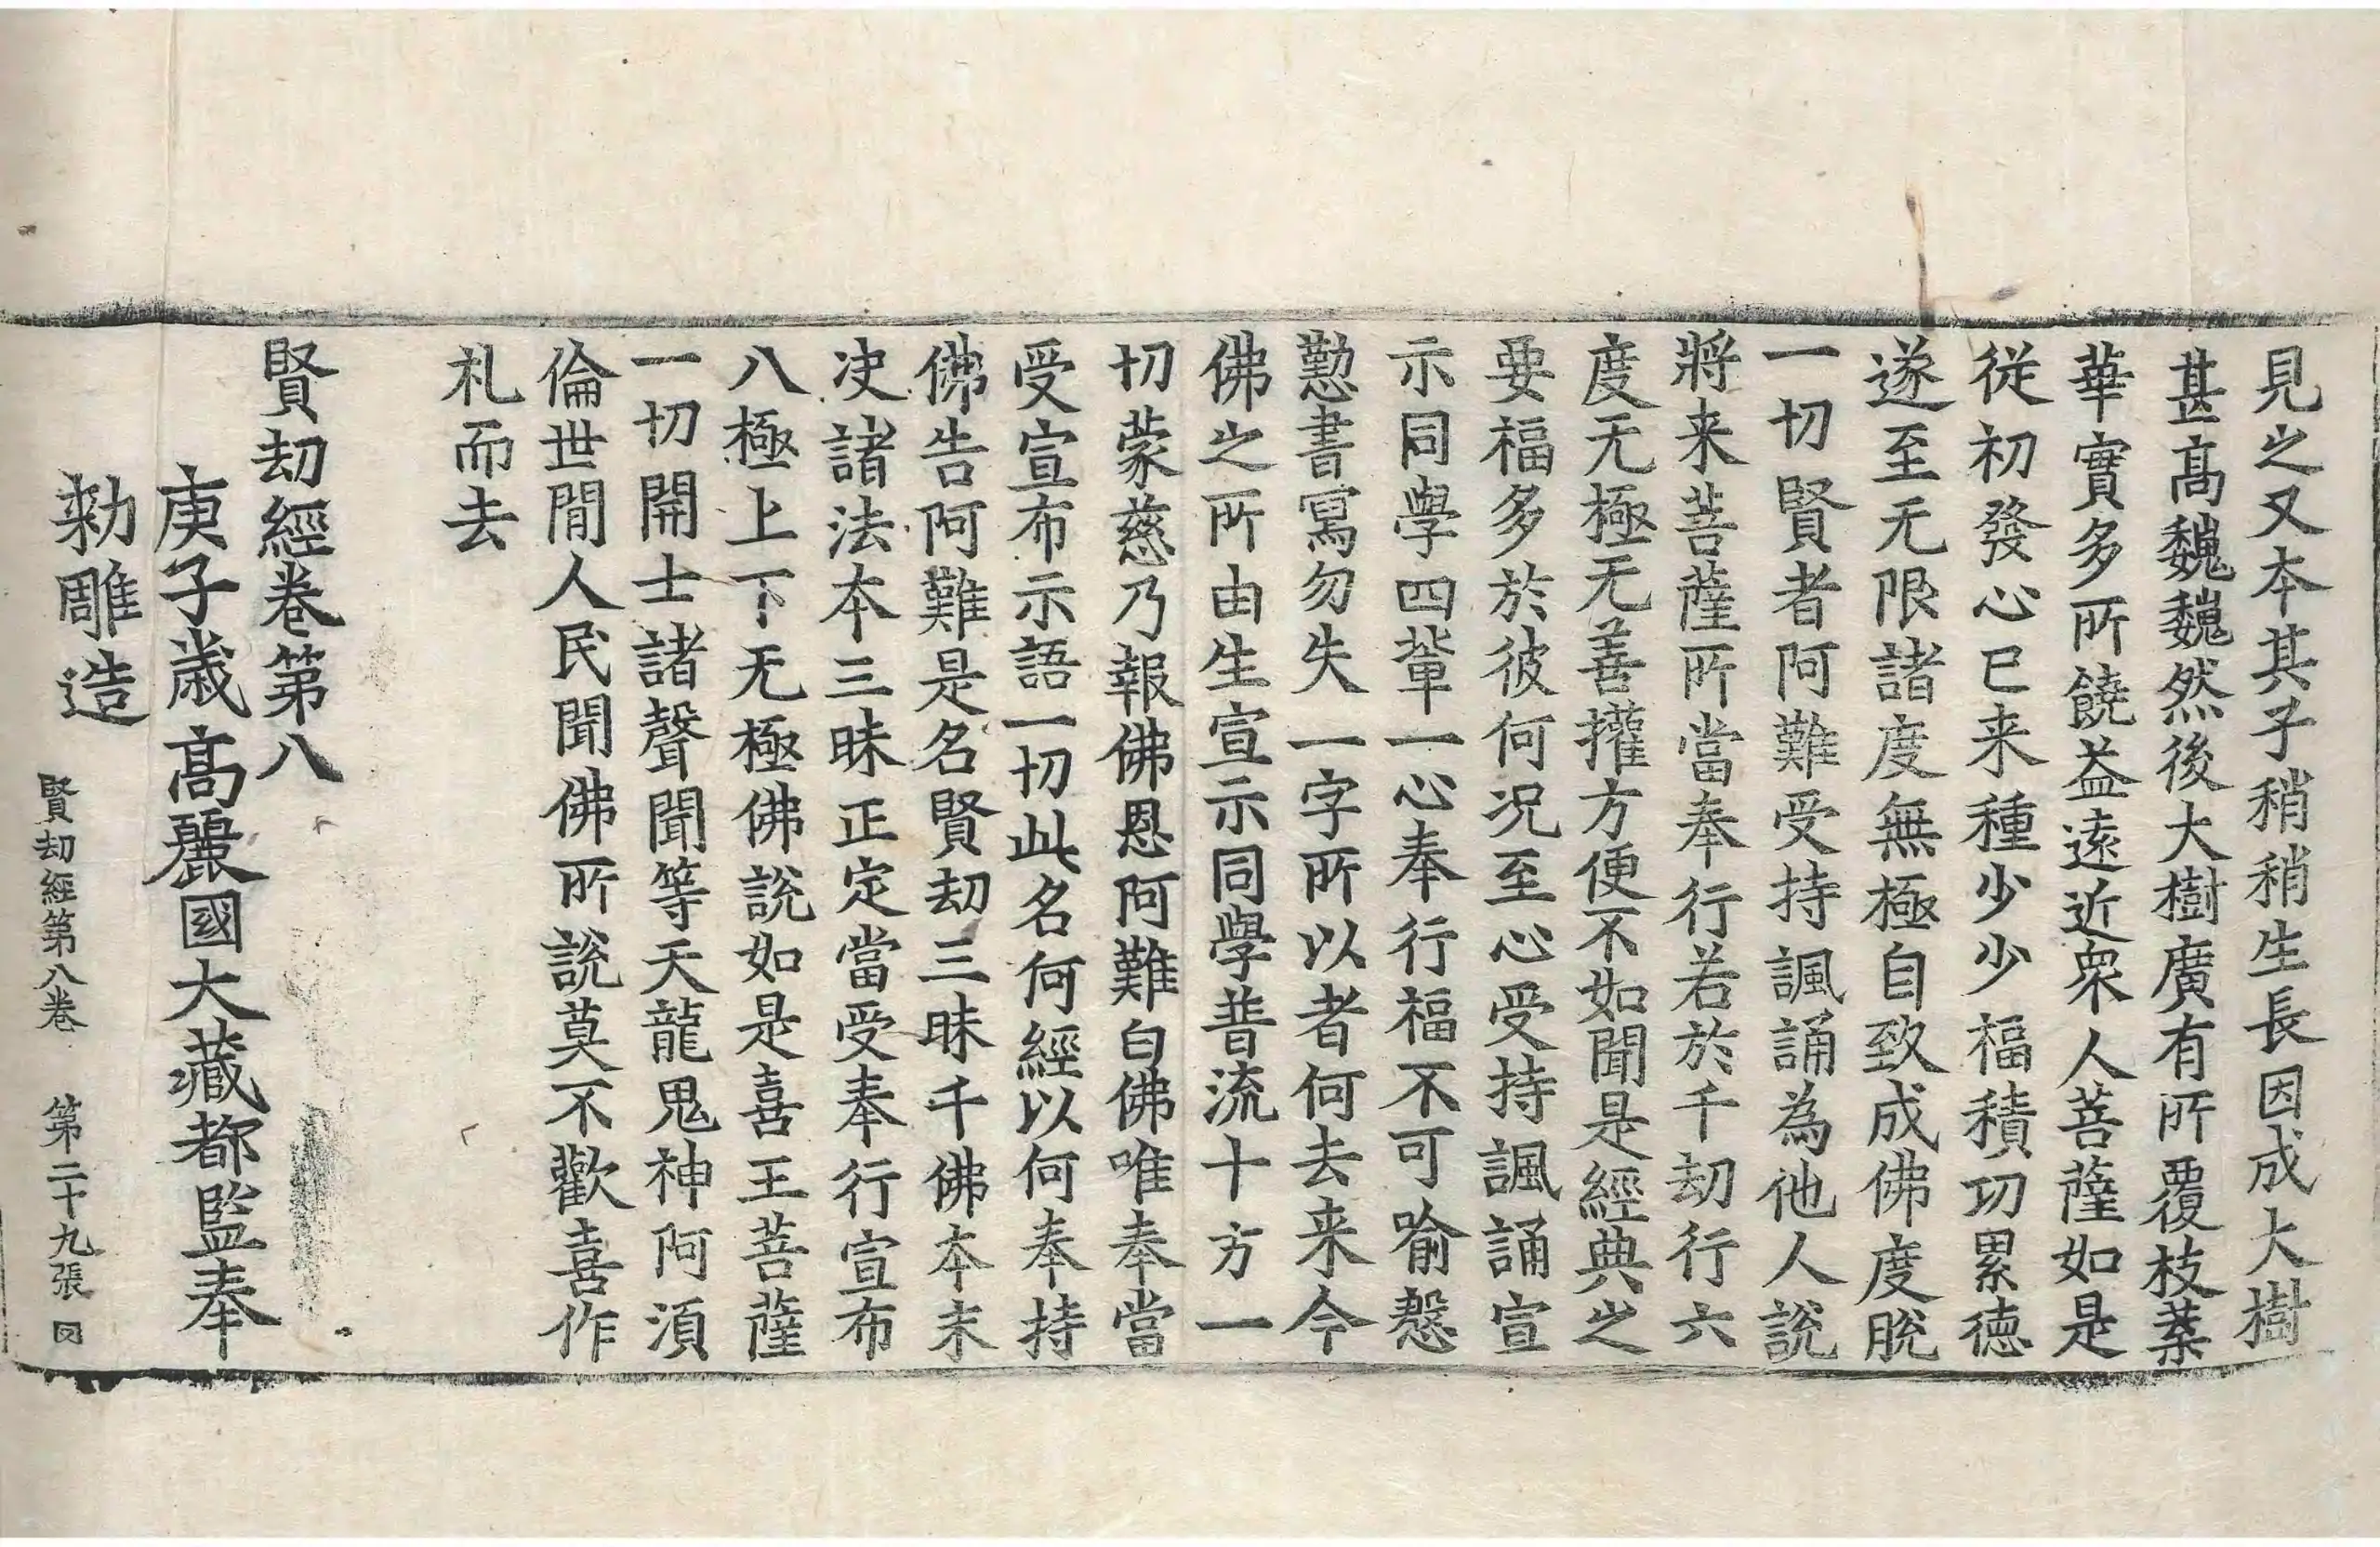 見之又本其子稍稍生長因成大樹
甚髙巍巍然後大樹廣有所覆枝葉
華實多所饒益遠近衆人菩薩如是
從初發心已来種少少福積功累德
遂至无限諸度無極自致成佛度脫
一切賢者阿難受持諷誦為他人說
將来菩薩所當奉行若於千劫行六
度无極无善攉方便不如聞是經典之
要福多於彼何况至心受持諷誦宣
示同學四輩一心奉行福不可喻慇
懃書寫勿失一字所以者何去来今
佛之所由生宣示同學普流十方一
切蒙慈乃報佛恩阿難白佛唯奉當
受宣布示語一切此名何經以何奉持
佛告阿難是名賢劫三昧千佛本末
决諸法本三昧正定當受奉行宣布
八極上下无極佛說如是喜王菩薩
一切開士諸聲聞等天龍鬼神阿湏
倫世閒人民聞佛所說莫不歡喜作
札而去
賢劫經卷第八
庚子歳髙麗國大藏都監奉
勑雕造
賢劫經第八卷 第二十九張